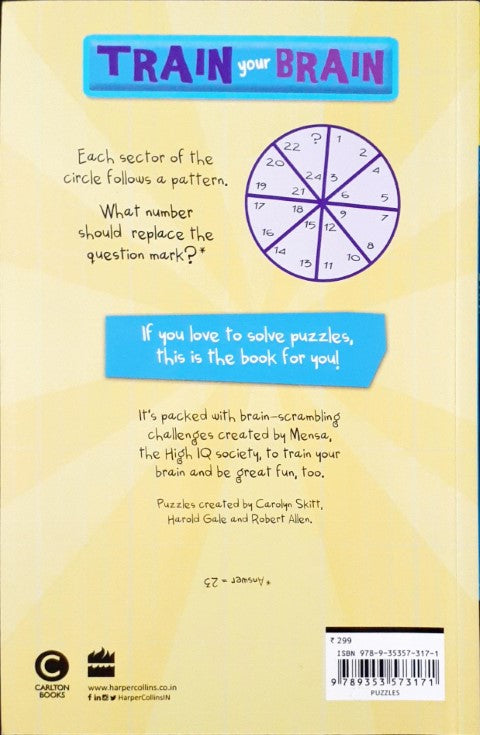 TRAIN your BRAIN
Each sector of the
circle follows a pattern.
What number
should replace the
question mark?*
? 1
22 2
20 4
24 3
19 21 6 5
17 18 9 7
16 15 12 8
14 10
13 11
If you love to solve puzzles,
this is the book for you!
It's packed with brain-scrambling
challenges created by Mensa,
the High IQ society, to train your
brain and be great fun, too.
Puzzles created by Carolyn Skitt,
Harold Gale and Robert Allen.
*Answer = 23
₹ 299
ISBN 978-9-35357-317-1
9 789353 573171
PUZZLES
C
CARLTON
BOOKS
www.harpercollins.co.in
f in HarperCollinsIN